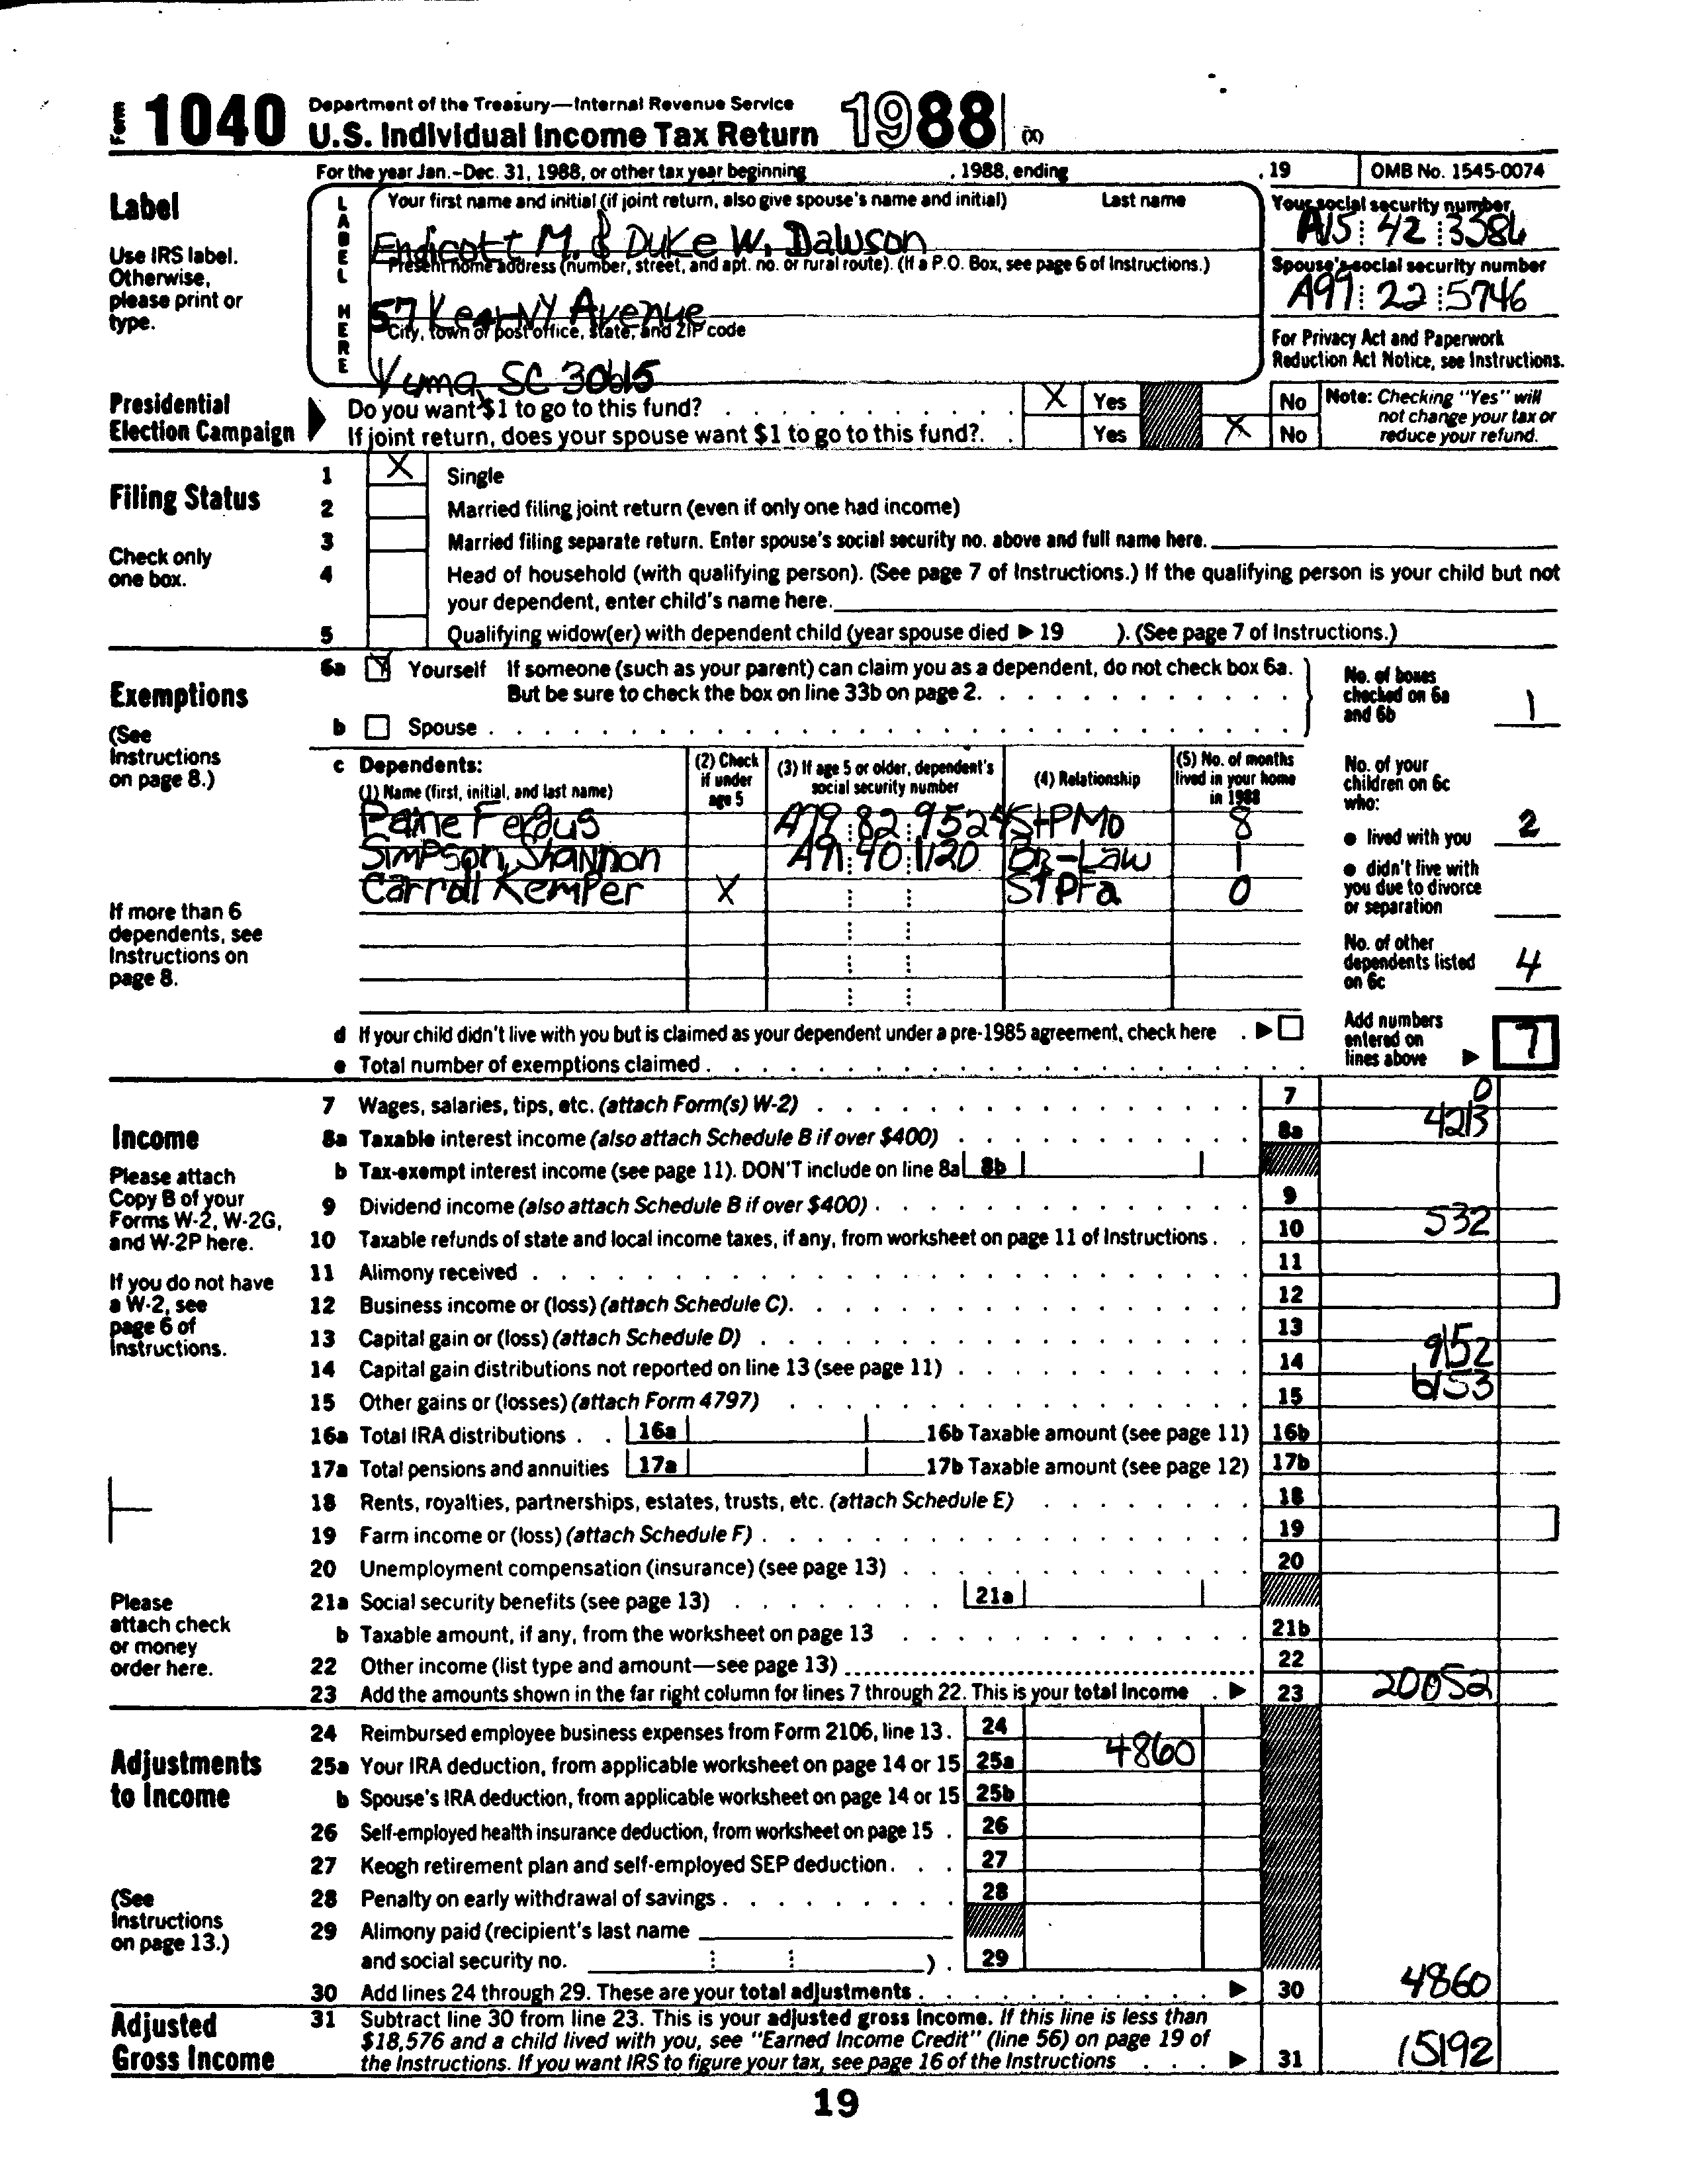 Form 1040 Department of the Treasury—Internal Revenue Service
U.S. Individual Income Tax Return 1988 (X)
For the year Jan.-Dec. 31, 1988, or other tax year beginning , 1988, ending , 19 OMB No. 1545-0074
Label
Use IRS label.
Otherwise,
please print or
type.
LABEL HERE
Your first name and initial (if joint return, also give spouse's name and initial) Last name
Endicott M. & Duke W. Dawson
Present home address (number, street, and apt. no. or rural route). (If a P.O. Box, see page 6 of Instructions.)
57 Kearny Avenue
City, town or post office, state, and ZIP code
Yuma, SC 30615
Your social security number
A15 42 3384
Spouse's social security number
A97 22 5746
For Privacy Act and Paperwork
Reduction Act Notice, see Instructions.
Presidential
Election Campaign
Do you want $1 to go to this fund? X Yes No
If joint return, does your spouse want $1 to go to this fund?. Yes X No
Note: Checking "Yes" will
not change your tax or
reduce your refund.
Filing Status
Check only
one box.
1 X Single
2 Married filing joint return (even if only one had income)
3 Married filing separate return. Enter spouse's social security no. above and full name here.
4 Head of household (with qualifying person). (See page 7 of Instructions.) If the qualifying person is your child but not
your dependent, enter child's name here.
5 Qualifying widow(er) with dependent child (year spouse died ▶ 19 ). (See page 7 of Instructions.)
Exemptions
(See
Instructions
on page 8.)
6a X Yourself If someone (such as your parent) can claim you as a dependent, do not check box 6a.
But be sure to check the box on line 33b on page 2.
b Spouse
No. of boxes
checked on 6a
and 6b 1
c Dependents:
(1) Name (first, initial, and last name)
(2) Check
if under
age 5
(3) If age 5 or older, dependent's
social security number
(4) Relationship
(5) No. of months
lived in your home
in 1988
Paine Fergus A79 82 9524 StPMo 8
Simpson, Shannon A91 40 1120 Br-Law 1
Carroll Kemper X StPFa 0
If more than 6
dependents, see
Instructions on
page 8.
No. of your
children on 6c
who:
● lived with you 2
● didn't live with
you due to divorce
or separation
No. of other
dependents listed
on 6c 4
d If your child didn't live with you but is claimed as your dependent under a pre-1985 agreement, check here ▶
e Total number of exemptions claimed
Add numbers
entered on
lines above ▶ 7
Income
Please attach
Copy B of your
Forms W-2, W-2G,
and W-2P here.
If you do not have
a W-2, see
page 6 of
Instructions.
Please
attach check
or money
order here.
7 Wages, salaries, tips, etc. (attach Form(s) W-2) 7 0
8a Taxable interest income (also attach Schedule B if over $400) 8a 4213
b Tax-exempt interest income (see page 11). DON'T include on line 8a 8b
9 Dividend income (also attach Schedule B if over $400) 9
10 Taxable refunds of state and local income taxes, if any, from worksheet on page 11 of Instructions 10 532
11 Alimony received 11
12 Business income or (loss) (attach Schedule C). 12
13 Capital gain or (loss) (attach Schedule D) 13
14 Capital gain distributions not reported on line 13 (see page 11) 14 9152
15 Other gains or (losses) (attach Form 4797) 15 6153
16a Total IRA distributions 16a 16b Taxable amount (see page 11) 16b
17a Total pensions and annuities 17a 17b Taxable amount (see page 12) 17b
18 Rents, royalties, partnerships, estates, trusts, etc. (attach Schedule E) 18
19 Farm income or (loss) (attach Schedule F) 19
20 Unemployment compensation (insurance) (see page 13) 20
21a Social security benefits (see page 13) 21a
b Taxable amount, if any, from the worksheet on page 13 21b
22 Other income (list type and amount—see page 13) 22
23 Add the amounts shown in the far right column for lines 7 through 22. This is your total income ▶ 23 20052
Adjustments
to Income
(See
Instructions
on page 13.)
24 Reimbursed employee business expenses from Form 2106, line 13. 24
25a Your IRA deduction, from applicable worksheet on page 14 or 15 25a 4860
b Spouse's IRA deduction, from applicable worksheet on page 14 or 15 25b
26 Self-employed health insurance deduction, from worksheet on page 15 26
27 Keogh retirement plan and self-employed SEP deduction 27
28 Penalty on early withdrawal of savings 28
29 Alimony paid (recipient's last name
and social security no. ) 29
30 Add lines 24 through 29. These are your total adjustments ▶ 30 4860
Adjusted
Gross Income
31 Subtract line 30 from line 23. This is your adjusted gross income. If this line is less than
$18,576 and a child lived with you, see "Earned Income Credit" (line 56) on page 19 of
the Instructions. If you want IRS to figure your tax, see page 16 of the Instructions ▶ 31 15192
19